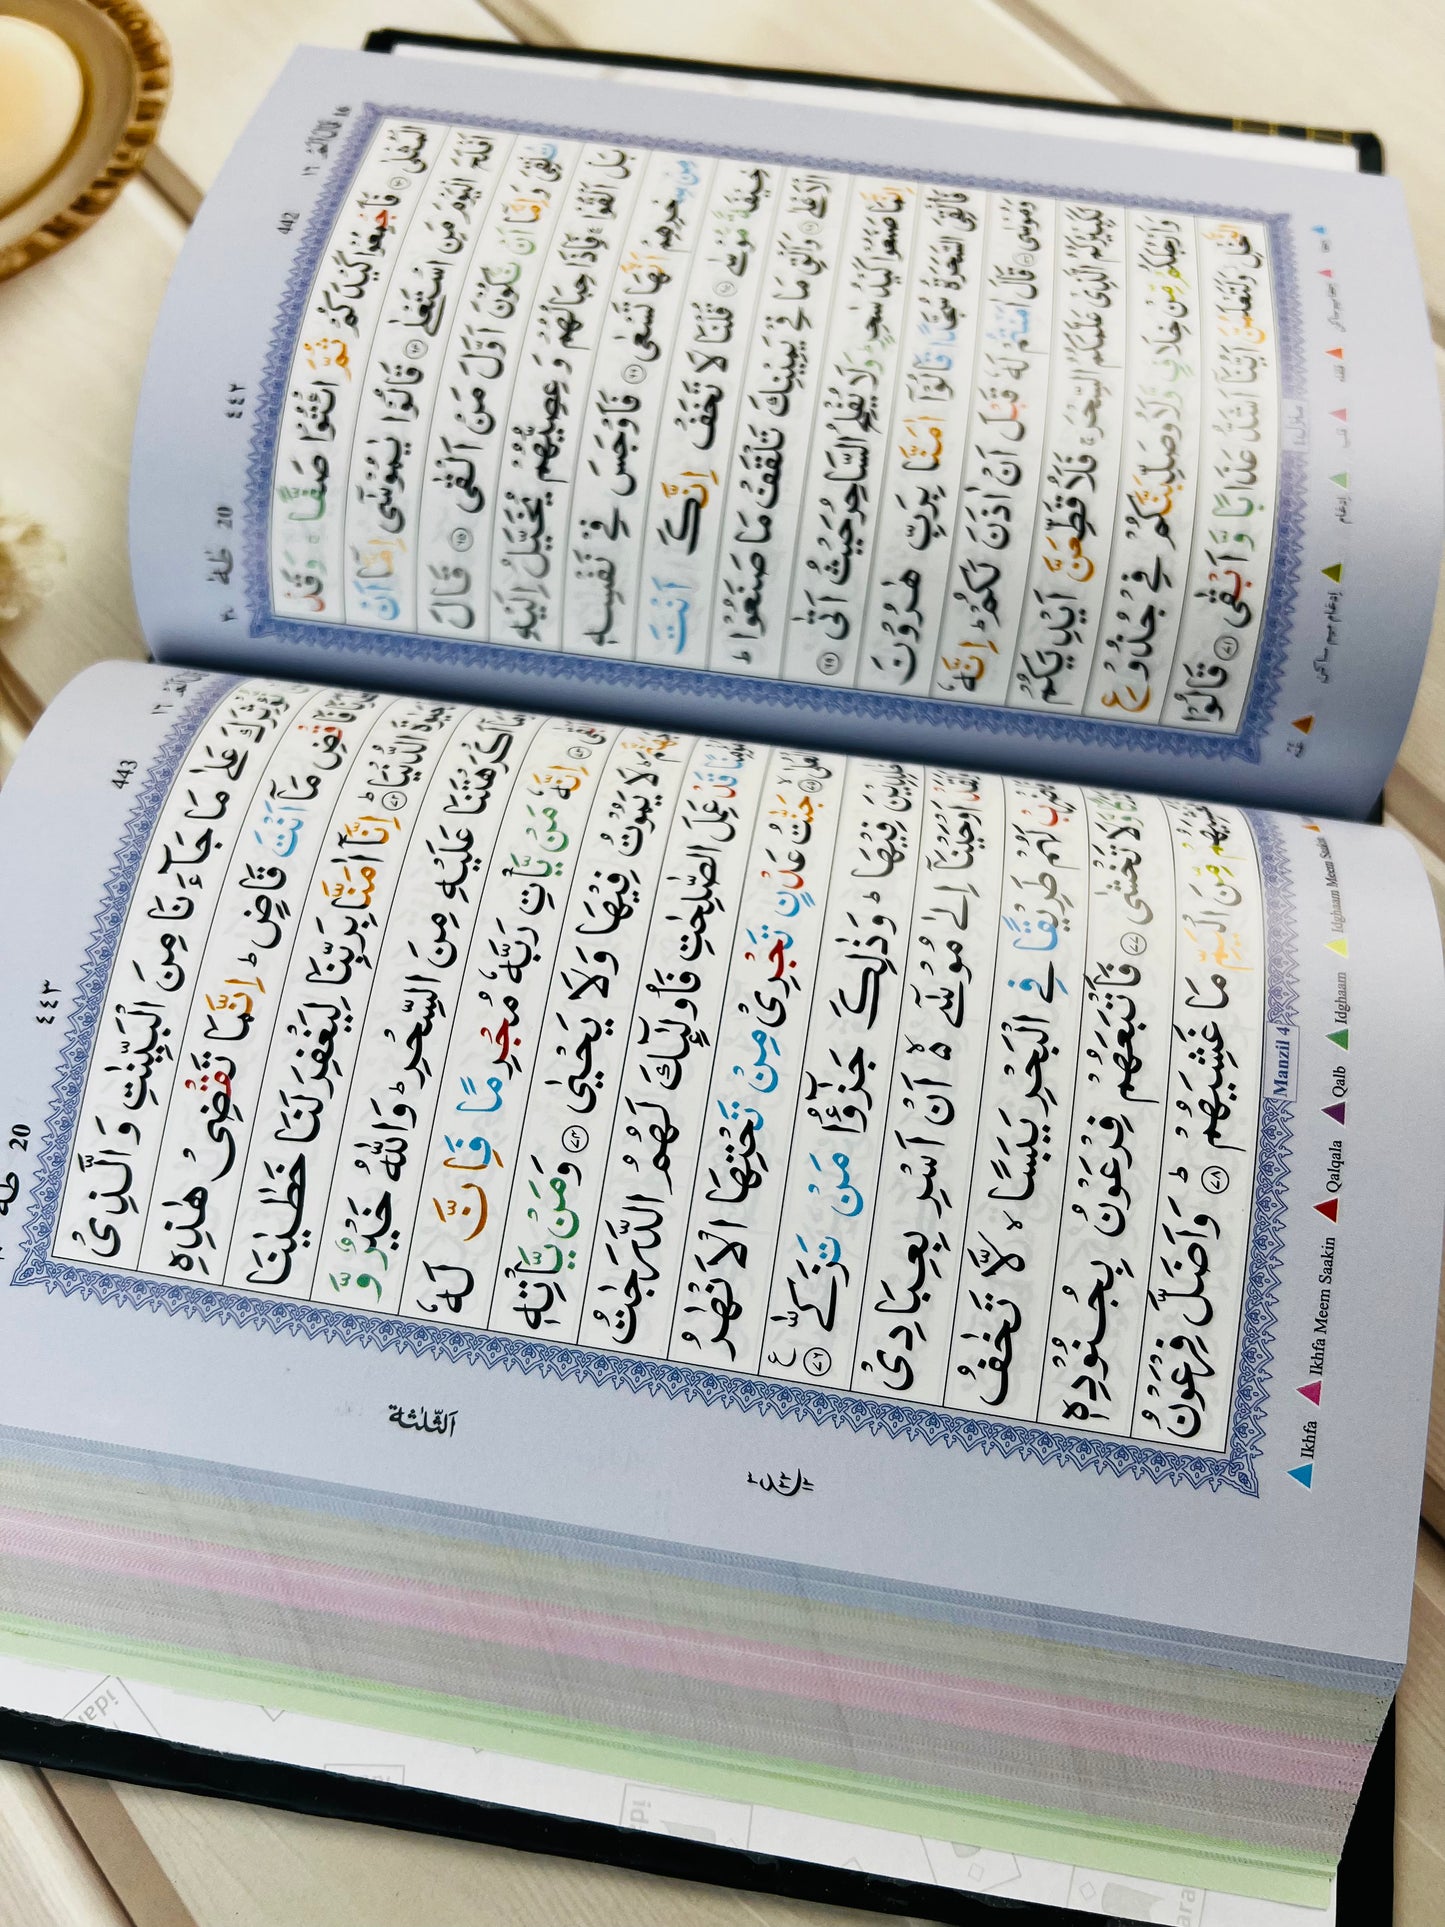 قال الم ١٦
442
٤٤٢
طٰهٰ 20
الْمُثْلٰى ﴿٦٣﴾ فَاَجْمِعُوْا كَيْدَكُمْ ثُمَّ ائْتُوْا صَفًّا ۚ وَقَدْ
اَفْلَحَ الْيَوْمَ مَنِ اسْتَعْلٰى ﴿٦٤﴾ قَالُوْا يٰمُوْسٰٓى اِمَّآ اَنْ
تُلْقِيَ وَاِمَّآ اَنْ نَّكُوْنَ اَوَّلَ مَنْ اَلْقٰى ﴿٦٥﴾ قَالَ
بَلْ اَلْقُوْا ۚ فَاِذَا حِبَالُهُمْ وَعِصِيُّهُمْ يُخَيَّلُ اِلَيْهِ
مِنْ سِحْرِهِمْ اَنَّهَا تَسْعٰى ﴿٦٦﴾ فَاَوْجَسَ فِيْ نَفْسِهٖ
خِيْفَةً مُّوْسٰى ﴿٦٧﴾ قُلْنَا لَا تَخَفْ اِنَّكَ اَنْتَ
الْاَعْلٰى ﴿٦٨﴾ وَاَلْقِ مَا فِيْ يَمِيْنِكَ تَلْقَفْ مَا صَنَعُوْا ؕ
اِنَّمَا صَنَعُوْا كَيْدُ سٰحِرٍ ؕ وَلَا يُفْلِحُ السَّاحِرُ حَيْثُ اَتٰى ﴿٦٩﴾
فَاُلْقِيَ السَّحَرَةُ سُجَّدًا قَالُوْٓا اٰمَنَّا بِرَبِّ هٰرُوْنَ
وَمُوْسٰى ﴿٧٠﴾ قَالَ اٰمَنْتُمْ لَهٗ قَبْلَ اَنْ اٰذَنَ لَكُمْ ؕ اِنَّهٗ
لَكَبِيْرُكُمُ الَّذِيْ عَلَّمَكُمُ السِّحْرَ ۚ فَلَاُقَطِّعَنَّ اَيْدِيَكُمْ
وَاَرْجُلَكُمْ مِّنْ خِلَافٍ وَّلَاُوصَلِّبَنَّكُمْ فِيْ جُذُوْعِ
النَّخْلِ وَلَتَعْلَمُنَّ اَيُّنَآ اَشَدُّ عَذَابًا وَّاَبْقٰى ﴿٧١﴾ قَالُوْا
منزل ٤
غنّه ادغام ميم ساكن ادغام قلب قلقله
443
٤٤٣
طٰهٰ 20
نُّؤْثِرَكَ عَلٰى مَا جَآءَنَا مِنَ الْبَيِّنٰتِ وَالَّذِيْ
فَاقْضِ مَآ اَنْتَ قَاضٍ ؕ اِنَّمَا تَقْضِيْ هٰذِهِ
الْحَيٰوةَ الدُّنْيَا ﴿٧٢﴾ؕ اِنَّآ اٰمَنَّا بِرَبِّنَا لِيَغْفِرَ لَنَا خَطٰيٰنَا
اَكْرَهْتَنَا عَلَيْهِ مِنَ السِّحْرِ ؕ وَاللّٰهُ خَيْرٌ وَّ
اَبْقٰى ﴿٧٣﴾ اِنَّهٗ مَنْ يَّاْتِ رَبَّهٗ مُجْرِمًا فَاِنَّ لَهٗ
جَهَنَّمَ ؕ لَا يَمُوْتُ فِيْهَا وَلَا يَحْيٰى ﴿٧٤﴾ وَمَنْ يَّاْتِهٖ
مُؤْمِنًا قَدْ عَمِلَ الصّٰلِحٰتِ فَاُولٰٓئِكَ لَهُمُ الدَّرَجٰتُ
الْعُلٰى ﴿٧٥﴾ۙ جَنّٰتُ عَدْنٍ تَجْرِيْ مِنْ تَحْتِهَا الْاَنْهٰرُ
خٰلِدِيْنَ فِيْهَا ؕ وَذٰلِكَ جَزٰٓؤُا مَنْ تَزَكّٰى ﴿٧٦﴾
وَلَقَدْ اَوْحَيْنَآ اِلٰى مُوْسٰٓى ۙ۬ اَنْ اَسْرِ بِعِبَادِيْ
فَاضْرِبْ لَهُمْ طَرِيْقًا فِي الْبَحْرِ يَبَسًا ۙ لَّا تَخٰفُ
دَرَكًا وَّلَا تَخْشٰى ﴿٧٧﴾ فَاَتْبَعَهُمْ فِرْعَوْنُ بِجُنُوْدِهٖ
فَغَشِيَهُمْ مِّنَ الْيَمِّ مَا غَشِيَهُمْ ؕ ﴿٧٨﴾ وَاَضَلَّ فِرْعَوْنُ
اَلثَّلٰثَة
ع
Manzil 4
Ikhfa Ikhfa Meem Saakin Qalqala Qalb Idghaam Idghaam Meem Saakin